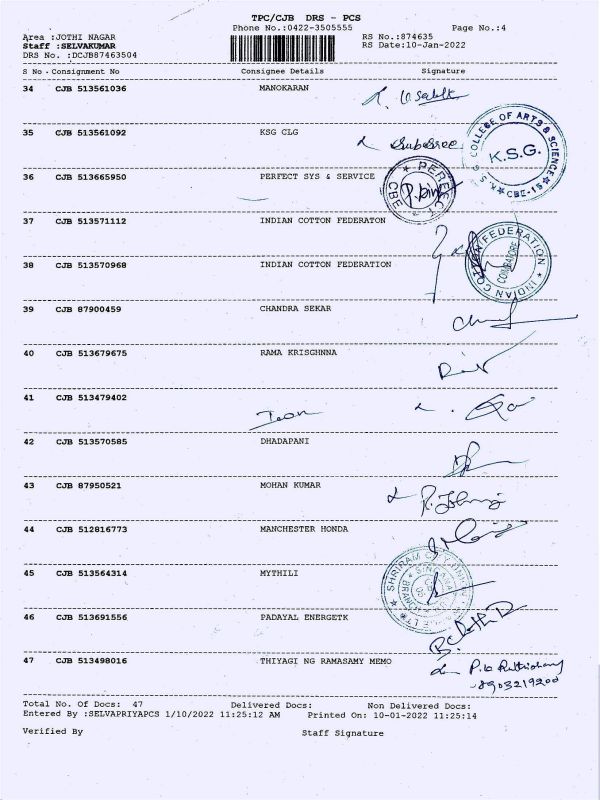 TPC/CJB DRS - PCS
Phone No.:0422-3505555 Page No.:4
Area :JOTHI NAGAR RS No.:874635
Staff :SELVAKUMAR RS Date:10-Jan-2022
DRS No. :DCJB87463504
S No - Consignment No Consignee Details Signature
34 CJB 513561036 MANOKARAN
35 CJB 513561092 KSG CLG
COLLEGE OF ARTS & SCIENCE
K.S.G.
CBE-15
36 CJB 513665950 PERFECT SYS & SERVICE
PERFECT
CBE
37 CJB 513571112 INDIAN COTTON FEDERATON
38 CJB 513570968 INDIAN COTTON FEDERATION
INDIAN COTTON FEDERATION
COIMBATORE
39 CJB 87900459 CHANDRA SEKAR
40 CJB 513679675 RAMA KRISGHNNA
41 CJB 513479402
42 CJB 513570585 DHADAPANI
43 CJB 87950521 MOHAN KUMAR
44 CJB 512816773 MANCHESTER HONDA
45 CJB 513564314 MYTHILI
SHRIRAM CITY UNION
46 CJB 513691556 PADAYAL ENERGETK
47 CJB 513498016 THIYAGI NG RAMASAMY MEMO
8903219200
Total No. Of Docs: 47 Delivered Docs: Non Delivered Docs:
Entered By :SELVAPRIYAPCS 1/10/2022 11:25:12 AM Printed On: 10-01-2022 11:25:14
Verified By Staff Signature